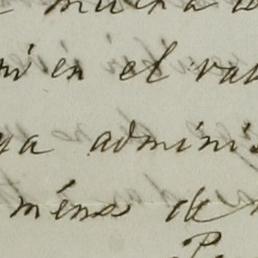 mucha
ni en el val
ya adminis
ménos de
P